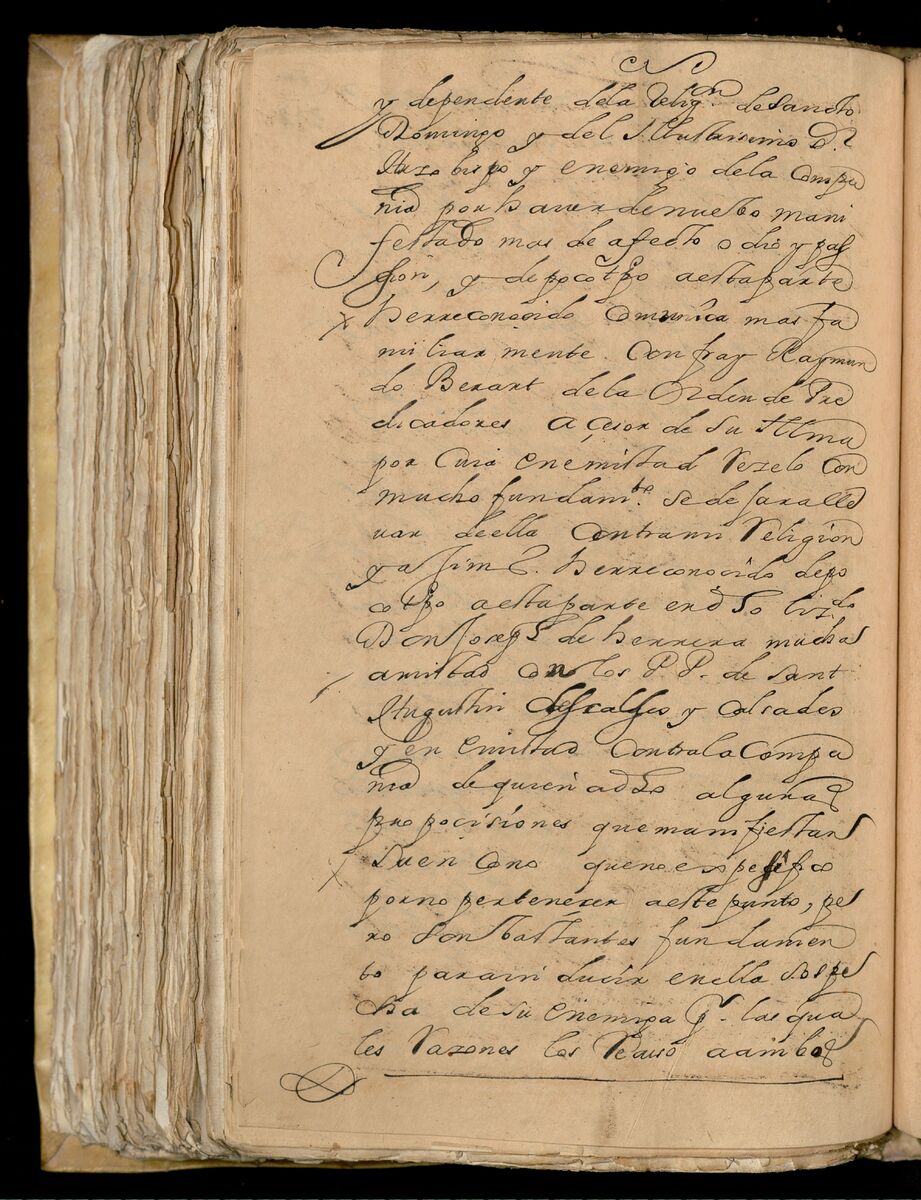 y dependente dela Relig.on de Sancto
Domingo y del Illustrissimo D.r
Arzobispo y enemigo dela Compa
ñia por haver de nuebo mani
festado mas de afecto odio y pas
sion, y de poco tpo aesta parte
he rreconocido comunica mas fa
miliar mente con fray Raymun
do Berart de la Orden de Pre
dicadores açesor de su Illma
por cuia enemistad Rezelo con
mucho fundam.to se dejara lle
var de ella contra mi Religion
y assimº. he rreconocido de po
co tpo aesta parte en dho liz.do
Don Joseph de herrera mucha
amistad con los P.P. de Sant
Augustin descalsos y calsados
y enemistad contra la Compa
ñia de quien a dho algunas
propociciones que manifiestan
su encono que no expesifico
por no pertenecer a este punto, pe
ro son bastantes fundamen
to para inducir en ella sospe
cha de su enemiga p.r las qua
les Razones los Recuso a ambos